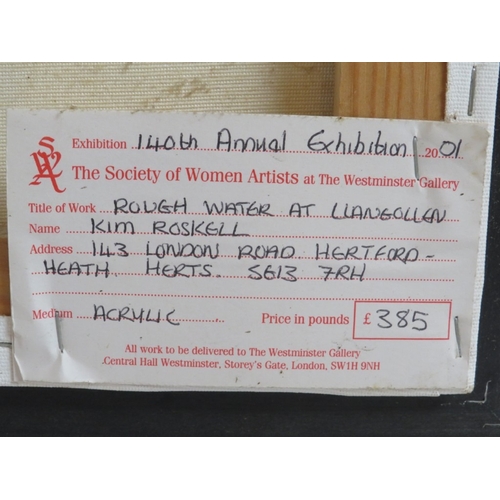 SWA
Exhibition 140th Annual Exhibition 2001
The Society of Women Artists at The Westminster Gallery
Title of Work ROUGH WATER AT LLANGOLLEN
Name KIM ROSKELL
Address 143 LONDON ROAD HERTFORD-
HEATH HERTS. SG13 7RH
Medium ACRYLIC Price in pounds £385
All work to be delivered to The Westminster Gallery
Central Hall Westminster, Storey's Gate, London, SW1H 9NH